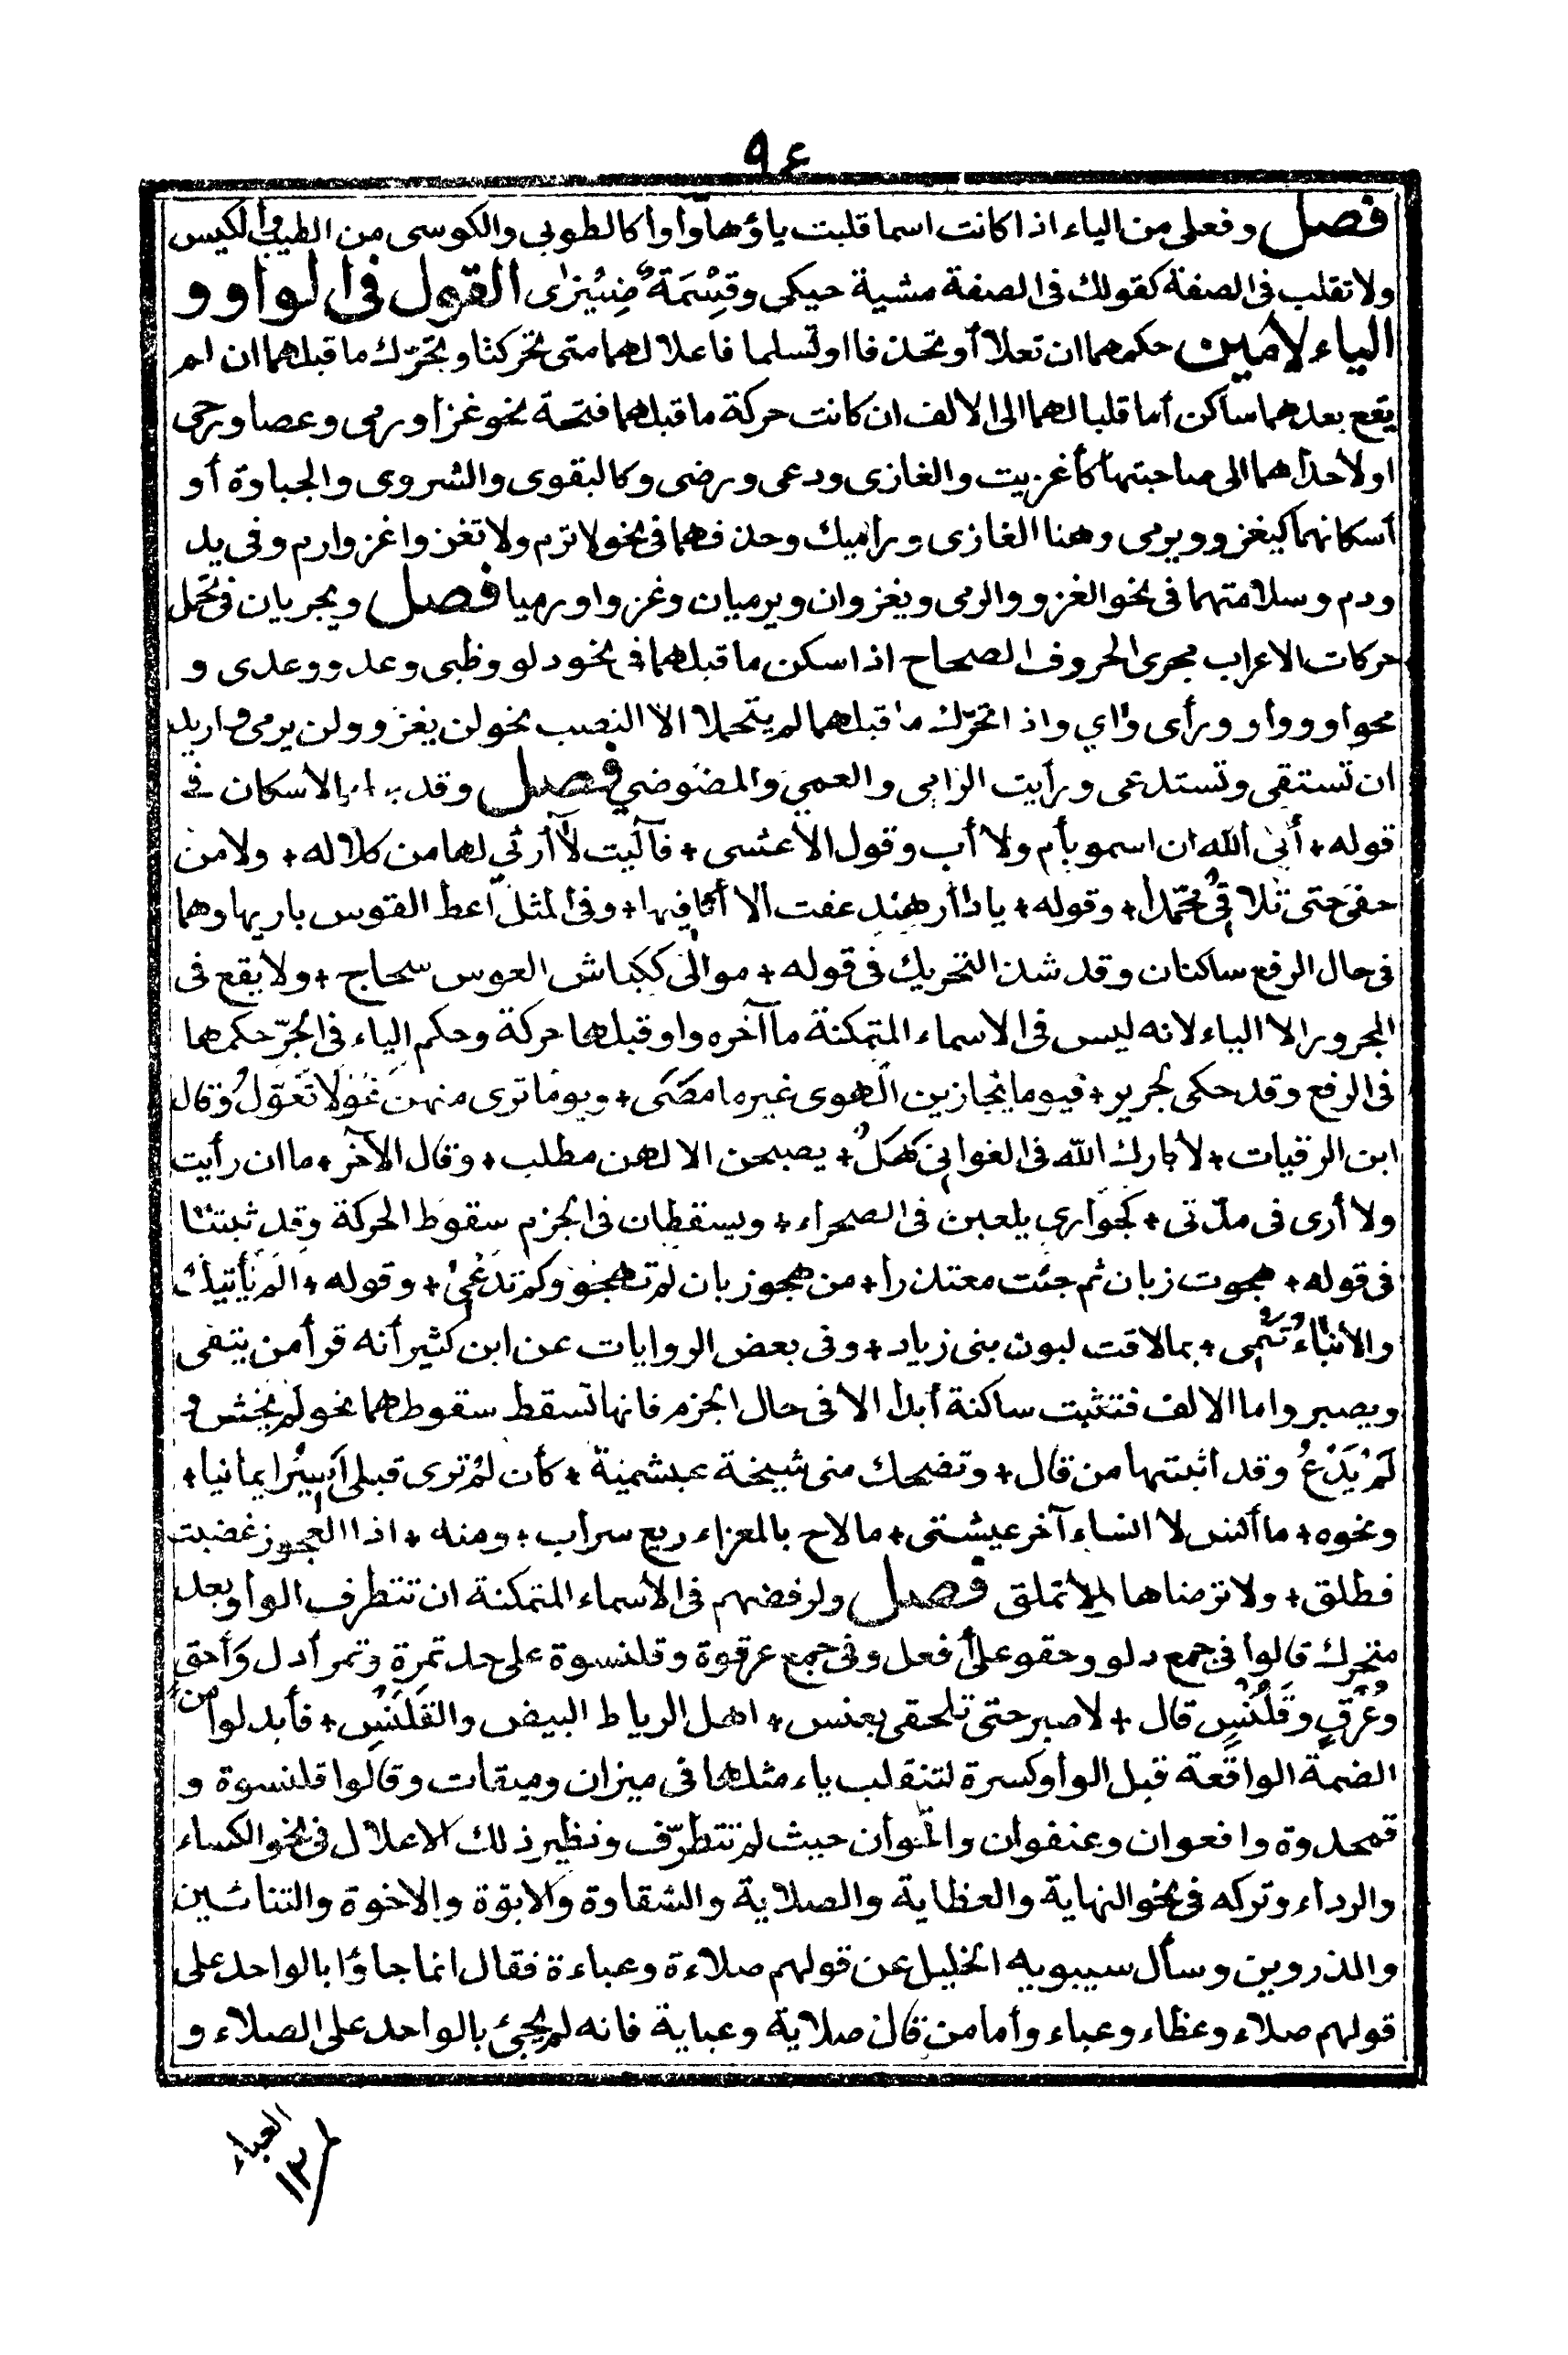 ٩٤
فصل وفعلى من الياء اذا كانت اسما قلبت ياؤها واوا كالطوبى والكوسى من الطيب والكيس
ولا تقلب فى الصفة كقولك فى الصفة مشية حيكى وقِسْمَةٌ ضِيْزٰى القول فى الواو و
الياء لامين حكمهما ان تعلا أو تحذفا او تسلما فاعلالهما متى تحركتا وتحرّك ما قبلهما ان لم
يقع بعدهما ساكن أما قلبا لهما الى الالف ان كانت حركة ما قبلهما فتحة نحو غزا ورمى وعصا ورحى
او لاحداهما الى صاحبتها كأغزيت والغازى ودعى ورضى وكالبقوى والشروى والجباوة أو
أسكانهما كيغزو ويرمى وهذا الغازى وراميك وحذفهما فى نحو لا ترم ولا تغز واغز وارم وفى يد
ودم وسلامتهما فى نحو الغزو والرمى ويغزوان ويرميان وغزوا ورميا فصل ويجريان فى تحمل
حركات الاعراب مجرى الحروف الصحاح اذا سكن ما قبلهما فى نحو دلو وظبى وعدو وعدى و
محواو وواو ورأى وأي واذا تحرّك ما قبلهما لم يتحملا الا النصب نحو لن يغزو ولن يرمى واريد
ان تستقى وتستدعى ورأيت الرامى والعمي والمضوضي فصل وقد الاسكان فى
قوله + أبى الله ان اسمو بأم ولا أب وقول الأعشى + فآليت لا أرثي لها من كلالة + ولا من
حفى حتى تلاقي محمدا + وقوله + يا دار هند عفت الا أثافيها + وفى المثل أعط القوس باريها وهما
فى حال الرفع ساكنان وقد شذ التحريك فى قوله + موالىٌ ككباش العوس سحاج + ولا يقع فى
المجرور الا الياء لانه ليس فى الاسماء المتمكنة ما آخره واو قبلها حركة وحكم الياء فى الجرّ حكمها
فى الرفع وقد حكى لجرير + فيوما يجازين الهوى غير ما مضى + ويوما ترى منهن غولا تغوّلُ وقال
ابن الرقيات + لا بارك الله فى الغوانىِ هَلْ + يصبحن الا لهن مطلب + وقال الآخر + ما ان رأيت
ولا أرى فى مدّتى + كجواريٍ يلعبن فى الصحراء + ويسقطان فى الجزم سقوط الحركة وقد ثبتتا
فى قوله + هجوت زبان ثم جئت معتذرا + من هجو زبان لم تهجو وكم تدعى + وقوله + الم يأتيك
والأنباءُ تنمى + بما لاقت لبون بنى زياد + وفى بعض الروايات عن ابن كثير أنه قرأ من يتقى
ويصبر واما الالف فتثبت ساكنة أبدا الا فى حال الجزم فانها تسقط سقوطهما نحو لم يخش و
لَمْ يُدْعَ وقد اثبتها من قال + وتضحك منى شيخة عبشمية + كأن لم ترى قبلى أسيرا يمانيا +
ونحوه + ما أنس لا انساه آخر عيشتى + ما لاح بالمعزاء ريع سراب + ومنه + اذا العجوز غضبت
فطلق + ولا ترضاها ولا تملق فصل ولرفضهم فى الأسماء المتمكنة ان تتطرف الواو بعد
متحرك قالوا فى جمع دلو وحقو على أفعل وفى جمع عرقوة وقلنسوة على حد تمرة وتمر أدل وأحق
وعَرْقٍ وقَلَنْسٍ قال + لا صبر حتى تلحقى بعنس + اهل الرياط البيض والقَلَنْسِ + فأبدلوا من
الضمة الواقعة قبل الواو كسرة لتنقلب ياء مثلها فى ميزان وميقات وقالوا قلنسوة و
قمحدوة وافعوان وعنفوان حيث لم تتطرّف ونظير ذلك الاعلال فى نحو الكساء
والرداء وتركه فى نحو النهاية والعظاية والصلاية والشقاوة والابوّة والاخوة والثنائين
والمذروين وسأل سيبويه الخليل عن قولهم صلاءة وعباءة فقال انما جاؤا بالواحد على
قولهم صلاء وعظاء وعباء وأما من قال صلاية وعباية فانه لم يجئ بالواحد على الصلاء و
العباء
١٣